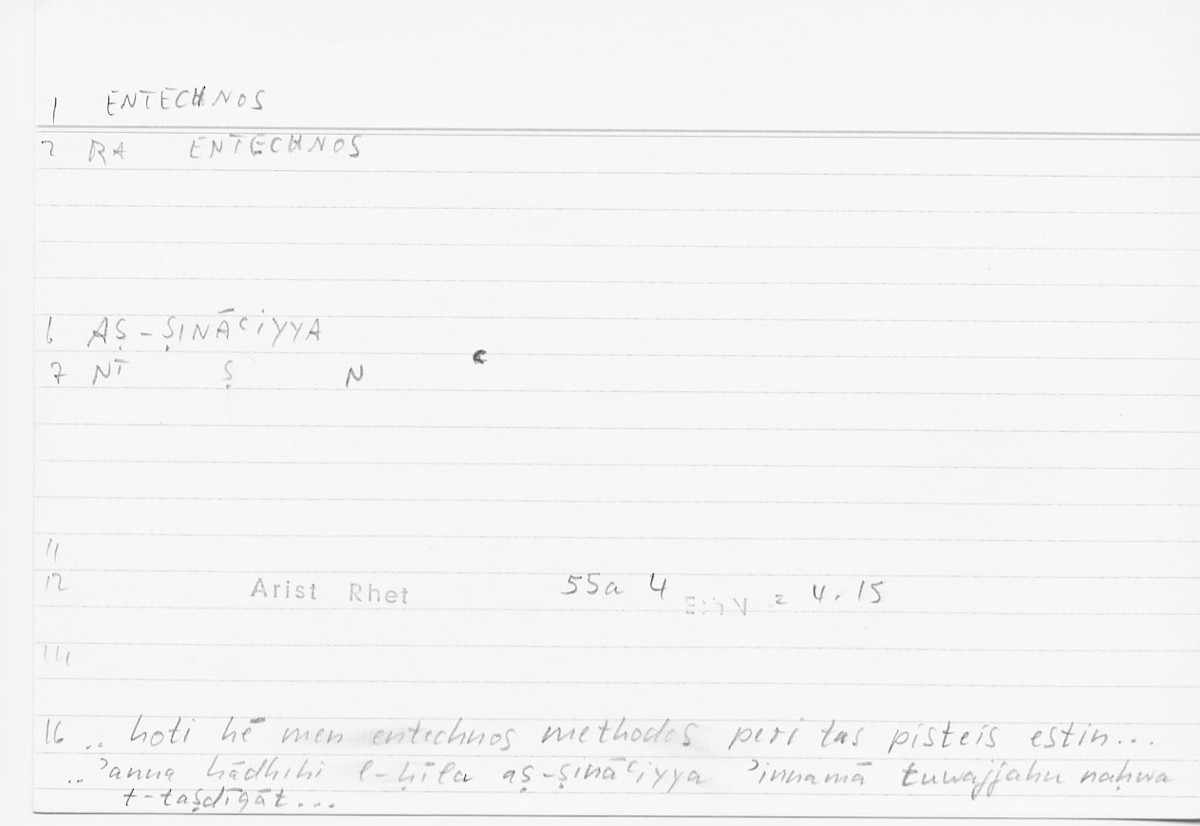 1 ENTECHNOS
2 RA ENTECHNOS
6 AṢ-ṢINĀʿIYYA
7 NT Ṣ N
11
12 Arist Rhet 55a 4 = 4.15
14
16 .. hoti hē men entechnos methodos peri tas pisteis estin...
.. ʾanna hādhihi l-ḥīla aṣ-ṣināʿiyya ʾinnamā tuwajjahu naḥwa
t-taṣdīqāt...